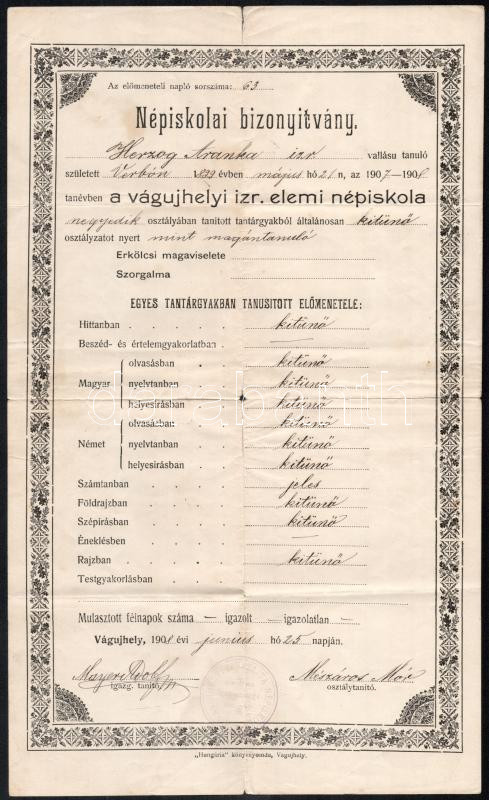 Az előmeneteli napló sorszáma: 63
Népiskolai bizonyitvány.
Herzog Aranka izr vallásu tanuló
született Verbón 1899 évben május hó 21 n, az 1907—1908
tanévben a vágujhelyi izr. elemi népiskola
negyedik osztályában tanitott tantárgyakból általánosan kitünő
osztályzatot nyert mint magántanuló
Erkölcsi magaviselete
Szorgalma
EGYES TANTÁRGYAKBAN TANUSITOTT ELŐMENETELE:
Hittanban kitünő
Beszéd- és értelemgyakorlatban —
Magyar olvasásban kitünő
nyelvtanban kitünő
helyesirásban kitünő
Német olvasásban kitünő
nyelvtanban kitünő
helyesirásban kitünő
Számtanban jeles
Földrajzban kitünő
Szépirásban kitünő
Éneklésben
Rajzban kitünő
Testgyakorlásban
Mulasztott félnapok száma — igazolt — igazolatlan —
Vágujhely, 1908 évi junius hó 25 napján.
Mayer Adolf Mészáros Mór
igazg. tanitó. osztálytanitó.
„Hungária" könyvnyomda, Vágujhely.
darabanth